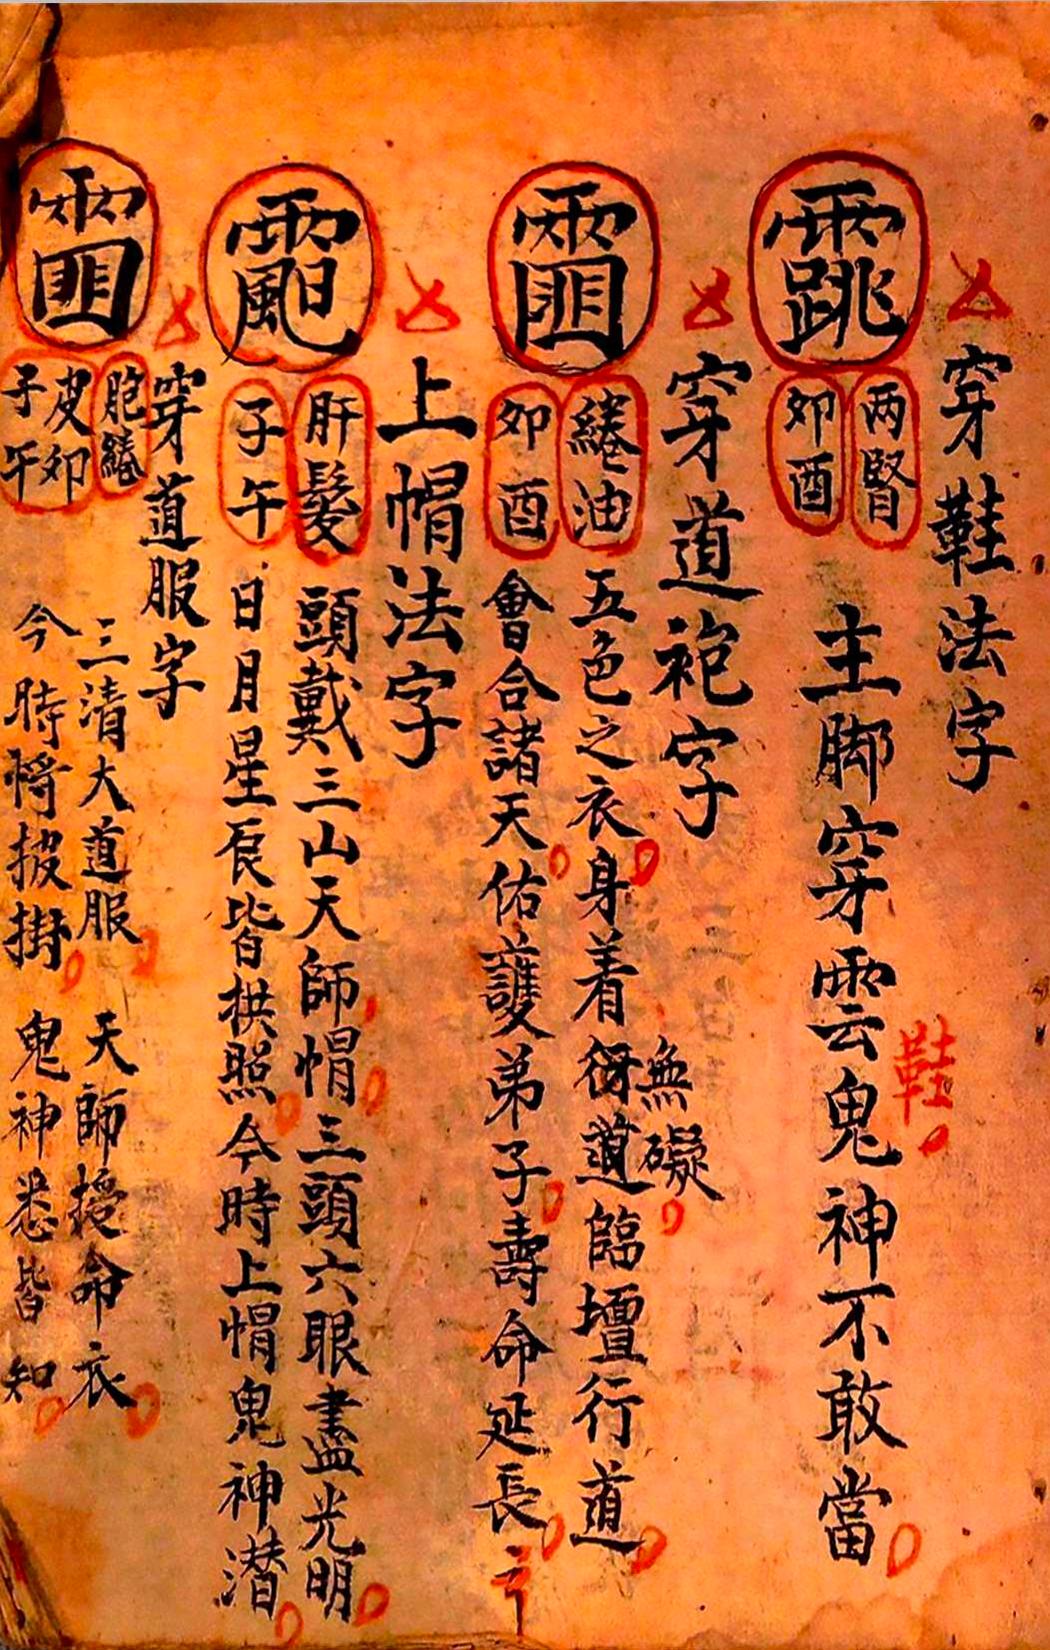 穿鞋法字
两腎
卯酉
主脚穿雲鬼神不敢當
鞋
穿道袍字
綣油
卯酉
五色之衣身着道臨壇行道
無礙
會合諸天佑護弟子壽命延長
上帽法字
肝髮
子午
頭戴三山天師帽三頭六眼盡光明
日月星辰皆拱照今時上帽鬼神潜
穿道服字
胞
皮卯
子午
三清大道服天師授命衣
今時将披掛鬼神悉皆知